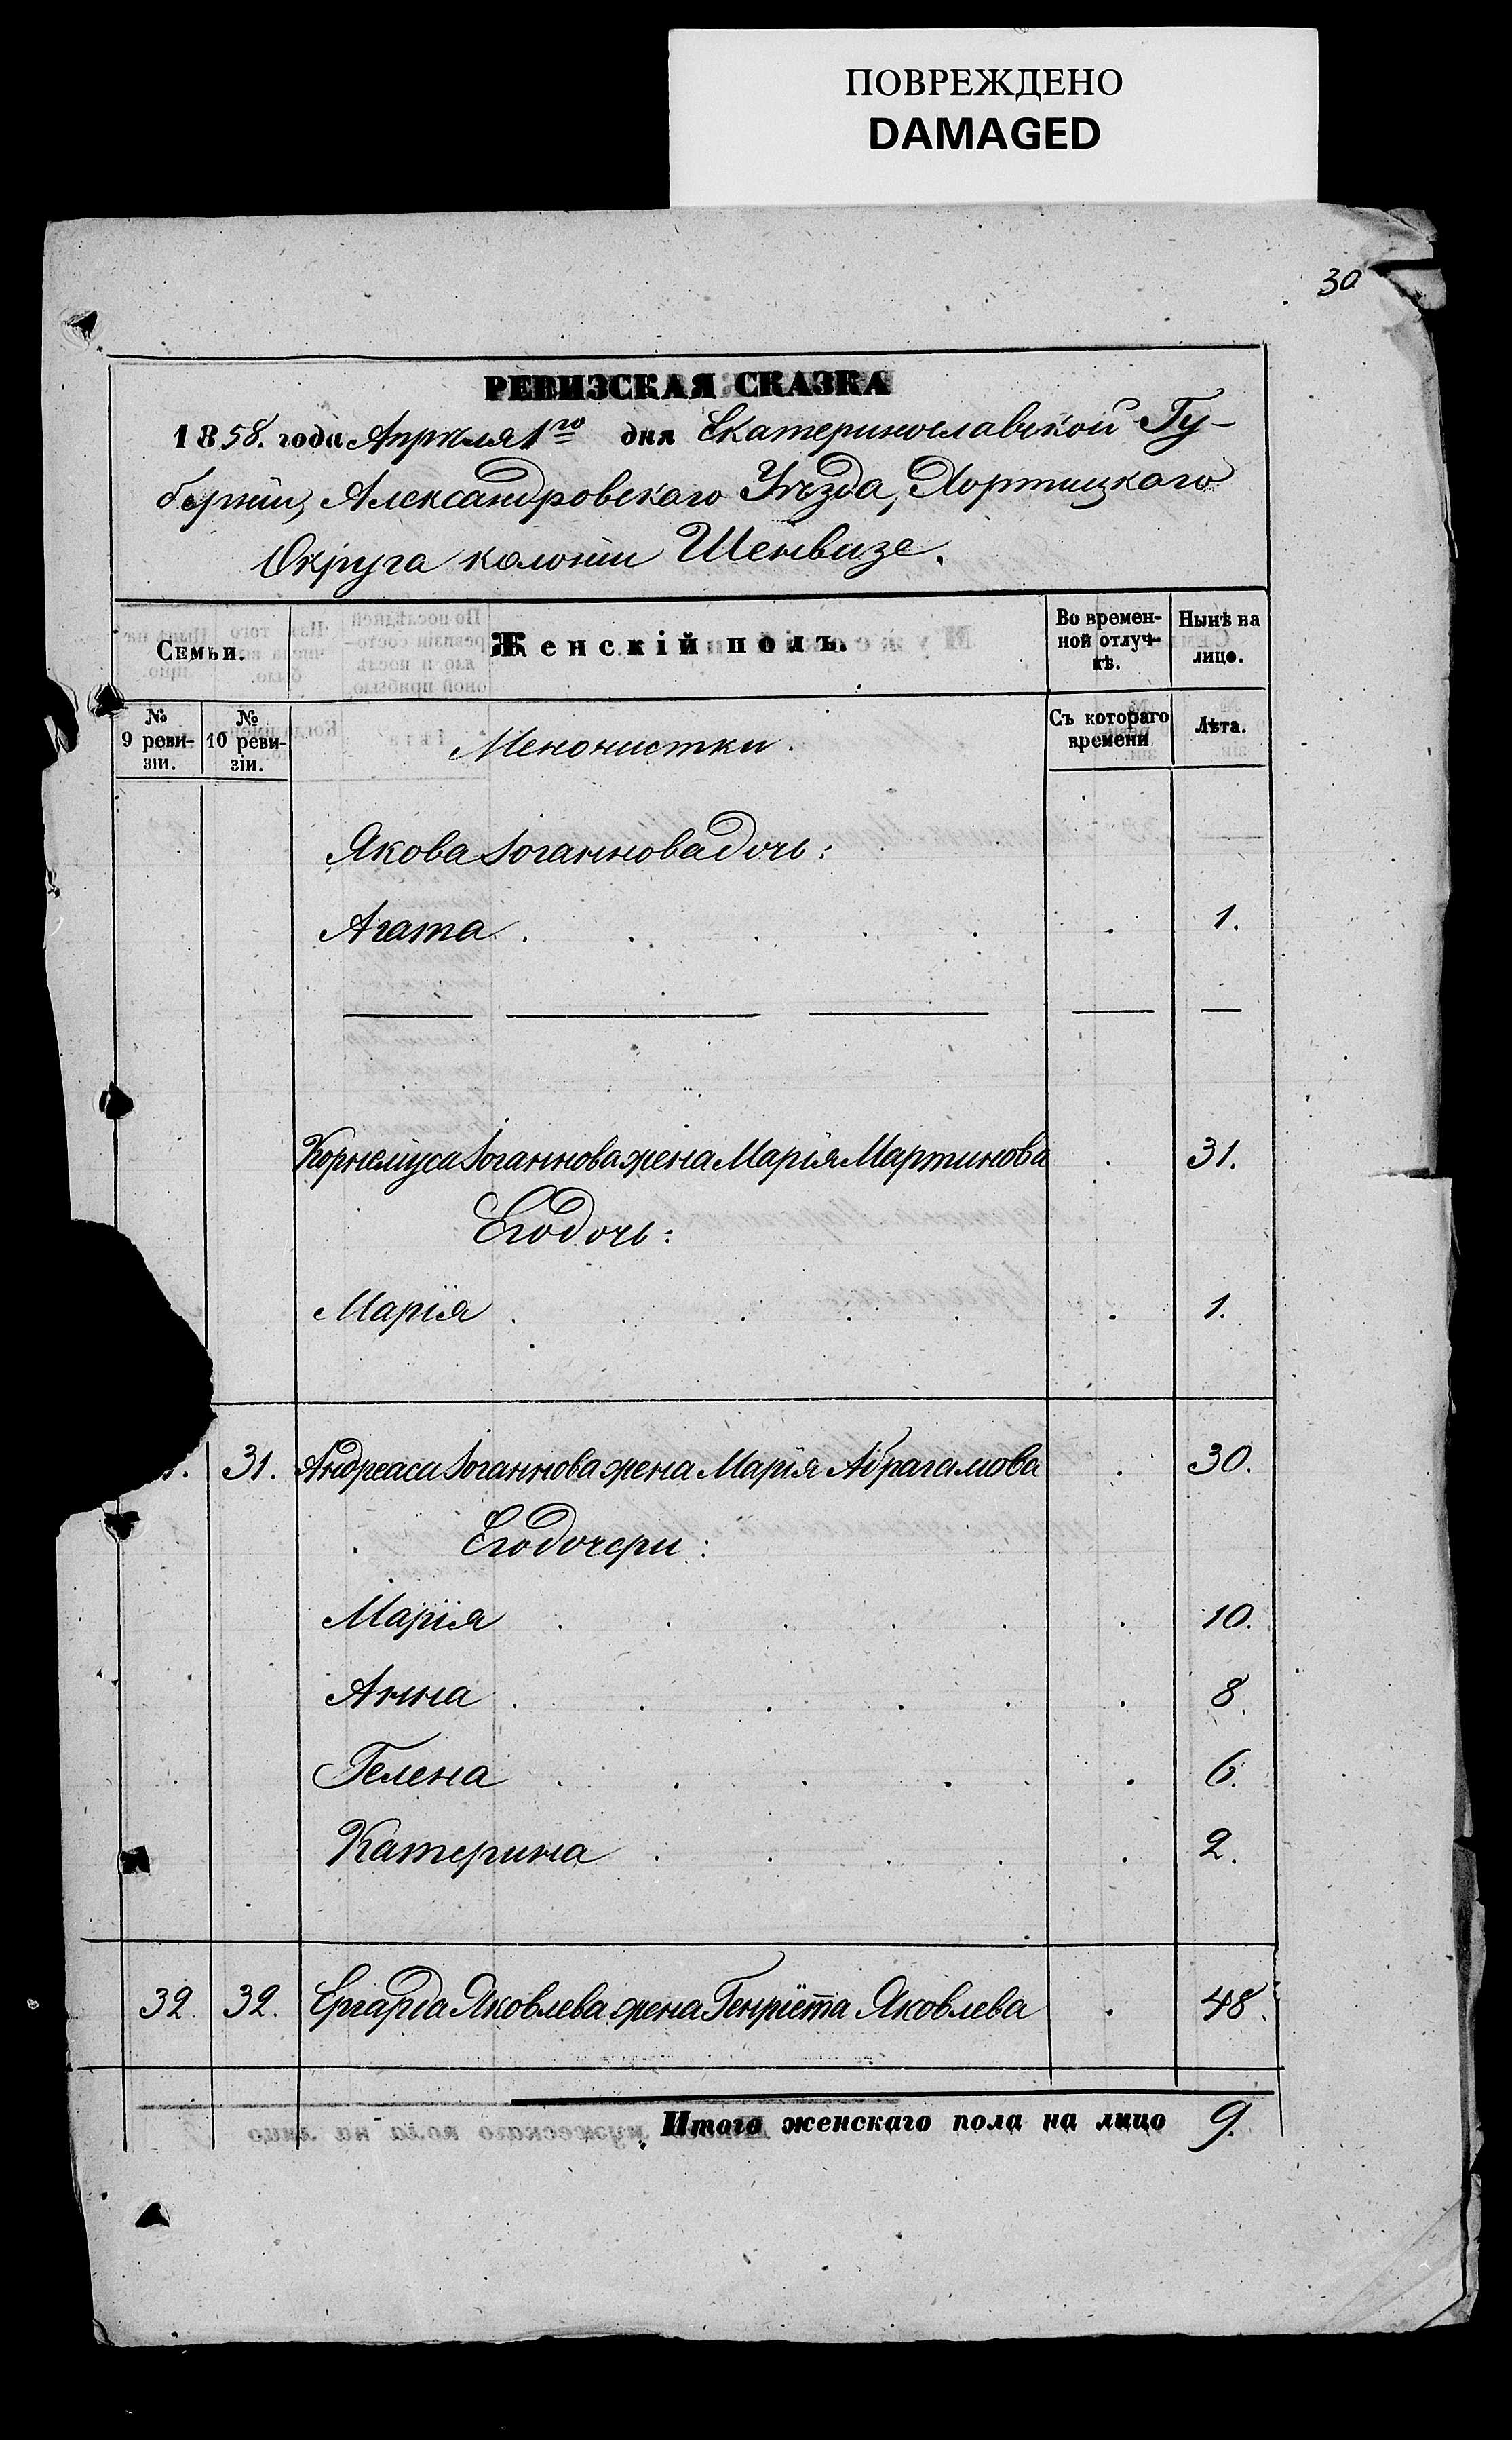 ПОВРЕЖДЕНО
DAMAGED
30
РЕВИЗСКАЯ СКАЗКА
1858. года Апрѣля 1го дня Екатеринославской Гу-
берніи, Александровскаго Уѣзда, Хортицкаго
Округа колоніи Шенвизе.
Семьи. Женскій полъ. Во времен-ной отлуч-кѣ. Нынѣ на лицо.
№ 9 реви-зіи. № 10 реви-зіи. Менонистки. Съ котораго времени Лѣта.
Якова Іоганнова дочь:
Агата 1.
Корнеліуса Іоганнова жена Марія Мартинова 31.
Его дочь:
Марія 1.
31. Андреаса Іоганнова жена Марія Абрагамова 30.
Его дочери:
Марія 10.
Анна 8.
Гелена 6.
Катерина 2.
32. 32. Ергарда Яковлева жена Генріета Яковлева 48.
Итого женскаго пола на лицо 9.